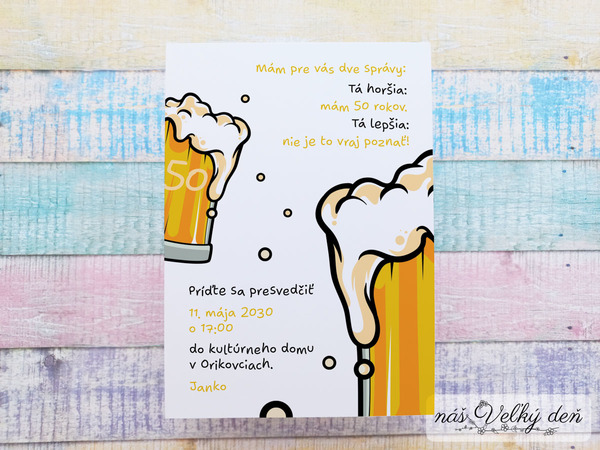 Mám pre vás dve správy:
Tá horšia:
mám 50 rokov.
Tá lepšia:
nie je to vraj poznať!
50
Príďte sa presvedčiť
11. mája 2030
o 17:00
do kultúrneho domu
v Orikovciach.
Janko
náš Veľký deň